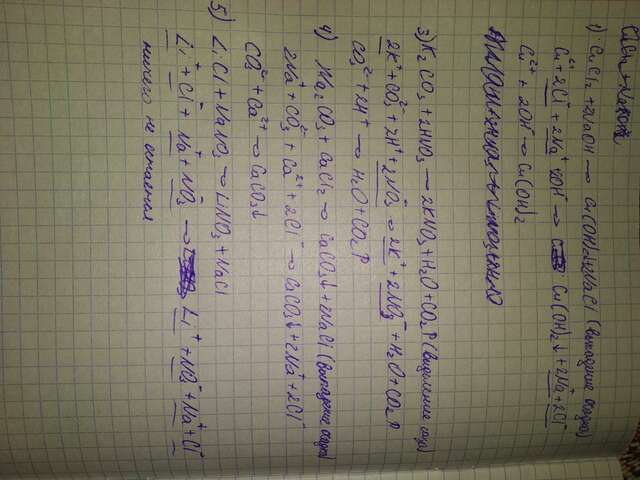 1) CuCl2 + 2NaOH → Cu(OH)2↓ + 2NaCl (выпадение осадка)
Cu2+ + 2Cl- + 2Na+ + 2OH- → Cu(OH)2↓ + 2Na+ + 2Cl-
Cu2+ + 2OH- → Cu(OH)2
3) K2CO3 + 2HNO3 → 2KNO3 + H2O + CO2↑ (выделение газа)
2K+ + CO3 2- + 2H+ + 2NO3- → 2K+ + 2NO3- + H2O + CO2↑
CO3 2- + 2H+ → H2O + CO2↑
4) Na2CO3 + CaCl2 → CaCO3↓ + 2NaCl (выпадение осадка)
2Na+ + CO3 2- + Ca2+ + 2Cl- → CaCO3↓ + 2Na+ + 2Cl-
CO3 2- + Ca2+ → CaCO3↓
5) LiCl + NaNO3 → LiNO3 + NaCl
Li+ + Cl- + Na+ + NO3- → Li+ + NO3- + Na+ + Cl-
ничего не